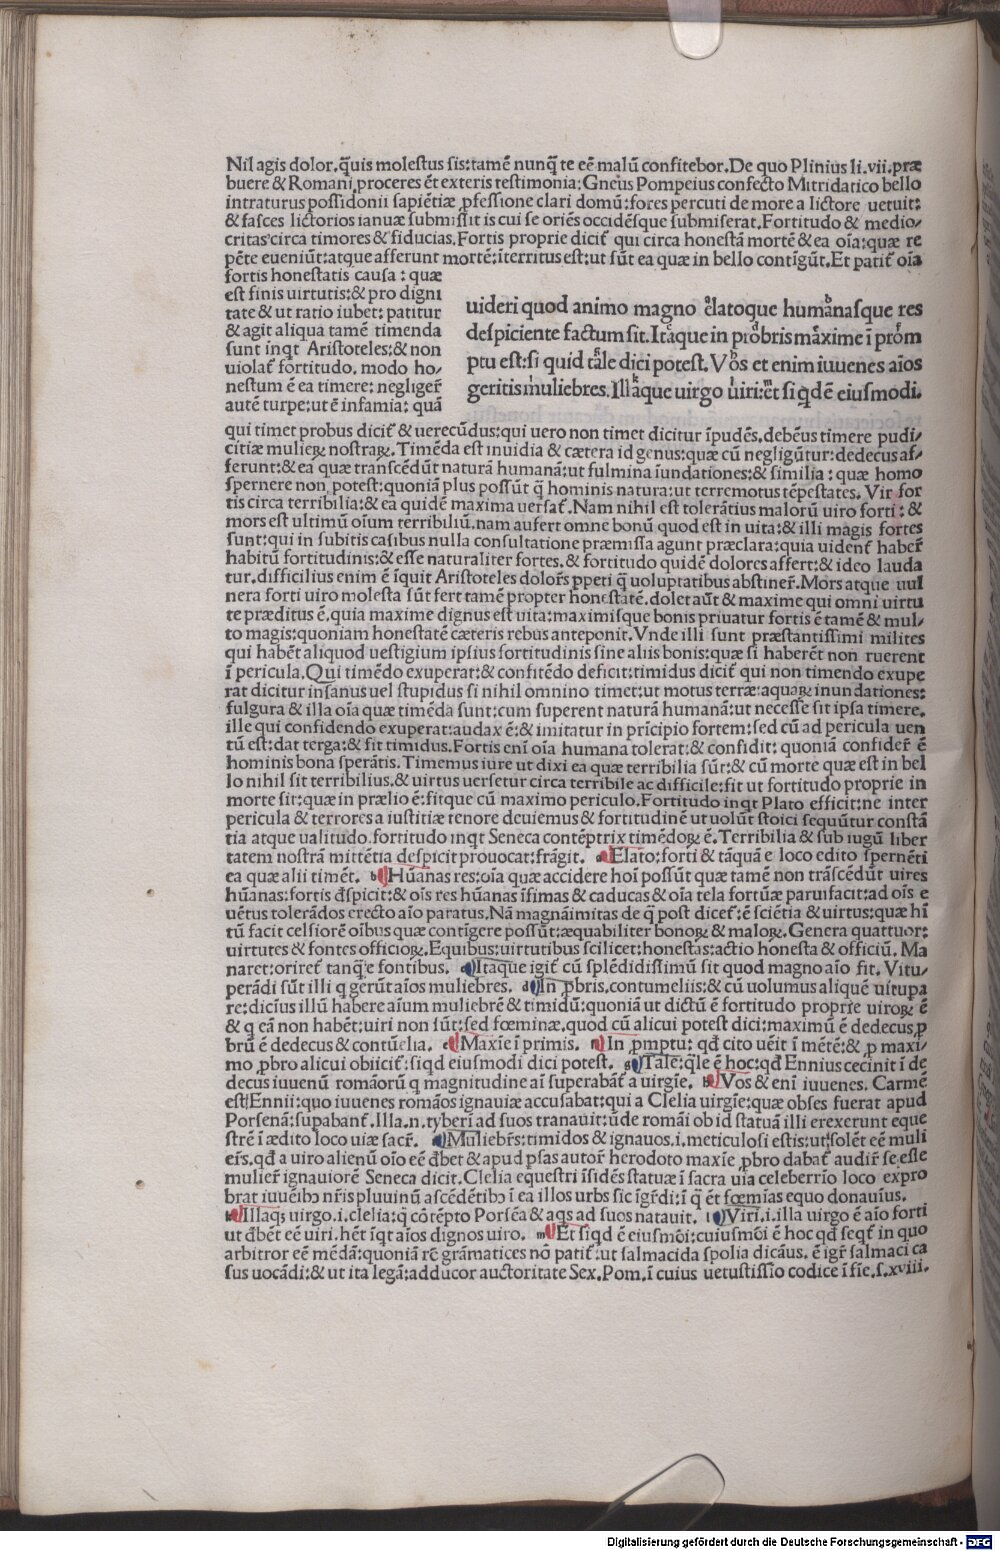 Nil agis dolor.q̃uis molestus sis:tamē nunq̃ te eē malū confitebor.De quo Plinius li.vii.præ
buere & Romani proceres ēt exteris testimonia:Gneus Pompeius confecto Mitridatico bello
intraturus possidonii sapiētiæ ꝓfessione clari domū:fores percuti de more a lictore uetuit:
& fasces lictorios ianuæ submisit is cui se oriēs occidēsque submiserat.Fortitudo & medio-
critas circa timores & fiducias.Fortis proprie dicit̃ qui circa honestā mortē & ea oīa:quæ re
pēte eueniūt:atque afferunt mortē:īterritus est:ut sūt ea quæ in bello contīgūt.Et patit̃ oīa
fortis honestatis causa : quæ
est finis uirtutis:& pro digni
tate & ut ratio iubet: patitur
& agit aliqua tamē timenda
sunt inqt Aristoteles:& non
uiolat̃ fortitudo. modo ho-
nestum ē ea timere: negliger̃
autē turpe:ut ē infamia: quā
uideri quod animo magno elatoque humanasque res
despiciente factum sit. Itaque in probris maxime ī prom
ptu est:si quid tale dici potest. Vos et enim iuuenes aīos
geritis muliebres. Illaque uirgo uiri:et si qdē eiusmodi.
qui timet probus dicit̃ & uerecūdus:qui uero non timet dicitur īpudēs.debēus timere pudi-
citiæ mulieꝝ nostraꝝ. Timēda est inuidia & cætera id genus:quæ cū negligūtur: dedecus af-
ferunt:& ea quæ transcēdūt naturā humanā:ut fulmina īundationes:& similia : quæ homo
spernere non potest:quoniā plus possūt q̃ hominis natura:ut terremotus tēpestates. Vir for
tis circa terribilia:& ea quidē maxima uersat̃. Nam nihil est tolerātius malorū uiro forti : &
mors est ultimū oīum terribiliū.nam aufert omne bonū quod est in uita:& illi magis fortes
sunt:qui in subitis casibus nulla consultatione præmissa agunt præclara:quia uidenſ haber̃
habitū fortitudinis:& esse naturaliter fortes.& fortitudo quidē dolores affert:& ideo lauda
tur.difficilius enim ē īquit Aristoteles dolor̃s ꝑpeti q̃ uoluptatibus abstiner̃.Mors atque uul
nera forti uiro molesta sūt fert tamē propter honestatē.dolet aūt & maxime qui omni uirtu
te præditus ē.quia maxime dignus est uita:maximisque bonis priuatur fortis ē tamē & mul-
to magis:quoniam honestatē cæteris rebus anteponit.Vnde illi sunt præstantissimi milites
qui habēt aliquod uestigium ipsius fortitudinis sine aliis bonis:quæ si haberēt non ruerent
ī pericula.Qui timēdo exuperat:& confitēdo deficit:timidus dicit̃ qui non timendo exupe
rat dicitur insanus uel stupidus si nihil omnino timet:ut motus terræ:aquaꝝ inundationes:
fulgura & illa oīa quæ timēda sunt:cum superent naturā humanā:ut necesse sit ipsa timere.
ille qui confidendo exuperat:audax ē:& imitatur in prīcipio fortem:sed cū ad pericula uen
tū est:dat terga:& fit timidus.Fortis enī oīa humana tolerat:& confidit: quoniā confider̃ ē
hominis bona sperātis.Timemus iure ut dixi ea quæ terribilia sūt:& cū morte quæ est in bel
lo nihil sit terribilius.& uirtus uersetur circa terribile ac difficile:fit ut fortitudo proprie in
morte sit:quæ in prælio ē:fitque cū maximo periculo.Fortitudo inqt Plato efficit:ne inter
pericula & terrores a iustitiæ tenore deuiemus & fortitudinē ut uolūt stoici sequūtur constā
tia atque ualitudo.fortitudo inqt Seneca contēptrix timēdoꝝ ē.Terribilia & sub iugū liber
tatem nostrā mittētia despicit prouocat:frāgit. a Elato:forti & tāquā e loco edito spernēti
ea quæ alii timēt. b Hūanas res:oīa quæ accidere hoī possūt quæ tamē non trāscēdūt uires
hūanas:fortis dspicit:& oīs res hūanas īfimas & caducas & oīa tela fortūæ paruifacit:ad oīs e
uētus tolerādos erecto aīo paratus.Nā magnāimitas de q̃ post dicet̃:ē sciētia & uirtus:quæ hī
tū facit celsiorē oībus quæ contīgere possūt:æquabiliter bonoꝝ & maloꝝ.Genera quattuor:
uirtutes & fontes officioꝝ.Equibus:uirtutibus scilicet:honestas:actio honesta & officiū. Ma
naret:oriret̃ tanq̃ e fontibus. c Itaque igit̃ cū splēdidissimū sit quod magno aīo fit. Vitu-
perādi sūt illi q gerūt aīos muliebres. d In ꝓbris.contumeliis:& cū uolumus aliquē uītupa
re:dicīus illū habere aīum muliebrē & timidū:quoniā ut dictū ē fortitudo proprīe uiroꝝ ē
& q eā non habēt:uiri non sūt:sed fœminæ.quod cū alicui potest dici:maximū ē dedecus.ꝓ
brū ē dedecus & contūelia. e Maxīe ī primis. f In ꝓmptu: qđ cito uēit ī mētē:& ꝓ maxi
mo ꝓbro alicui obiicit̃:siqd eiusmodi dici potest. g Tale:q̃le ē hoc:qđ Ennius cecinit ī de
decus iuuenū romāorū q magnitudine aī superabāt̃ a uirgīe. h Vos & enī iuuenes. Carmē
est Ennii:quo iuuenes romāos ignauiæ accusabat:qui a Clelia uirgīe:quæ obses fuerat apud
Porsenā:supabant̃.Illa.n.tyberī ad suos tranauit:ūde romāi ob id statuā illi erexerunt eque
strē ī ædito loco uiæ sacr̃. Muliebr̃s:timidos & ignauos.i.meticulosi estis:ut solēt eē muli
er̃s.qđ a uiro alienū oīo eē đbet & apud ꝑsas autor̃ herodoto maxīe ꝓbro dabat̃ audir̃ se esse
mulier̃ ignauiorē Seneca dicit. Clelia equestri īsidēs statuæ ī sacra uīa celeberrīo loco expro
brat iuuēibꝰ nr̃is pluuinū ascēdētibꝰ ī ea illos urbs sic īgr̃di:ī q̃ ēt fœmīas equo donauīus.
k Illaqꝫ uirgo.i.clelia:q̃ cōtēpto Porsēa & aqs ad suos natauit. l Viri.i.illa uirgo ē aīo forti
ut đbēt eē uiri.hēt īqt aīos dignos uiro. m Et siqd ē eiusmōi:cuiusmōi ē hoc qđ seqt̃ in quo
arbitror eē mēdā:quoniā rē grāmatices nō patit̃:ut salmacida spolia dicāus.ē igr̃ salmaci ca
sus uocādi:& ut ita legā:adducor auctoritate Sex.Pom.ī cuius uetustissīo codice ī fīe.s.xviii.
Digitalisierung gefördert durch die Deutsche Forschungsgemeinschaft - DFG